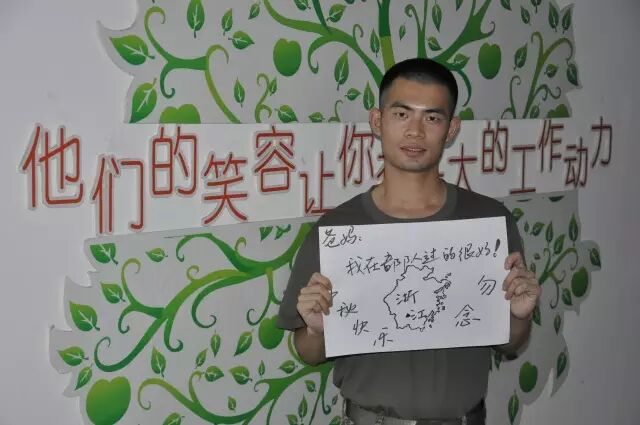 他们的笑容让你 大的工作动力
爸妈:
我在部队过的很好!
浙江
勿念
秋快乐